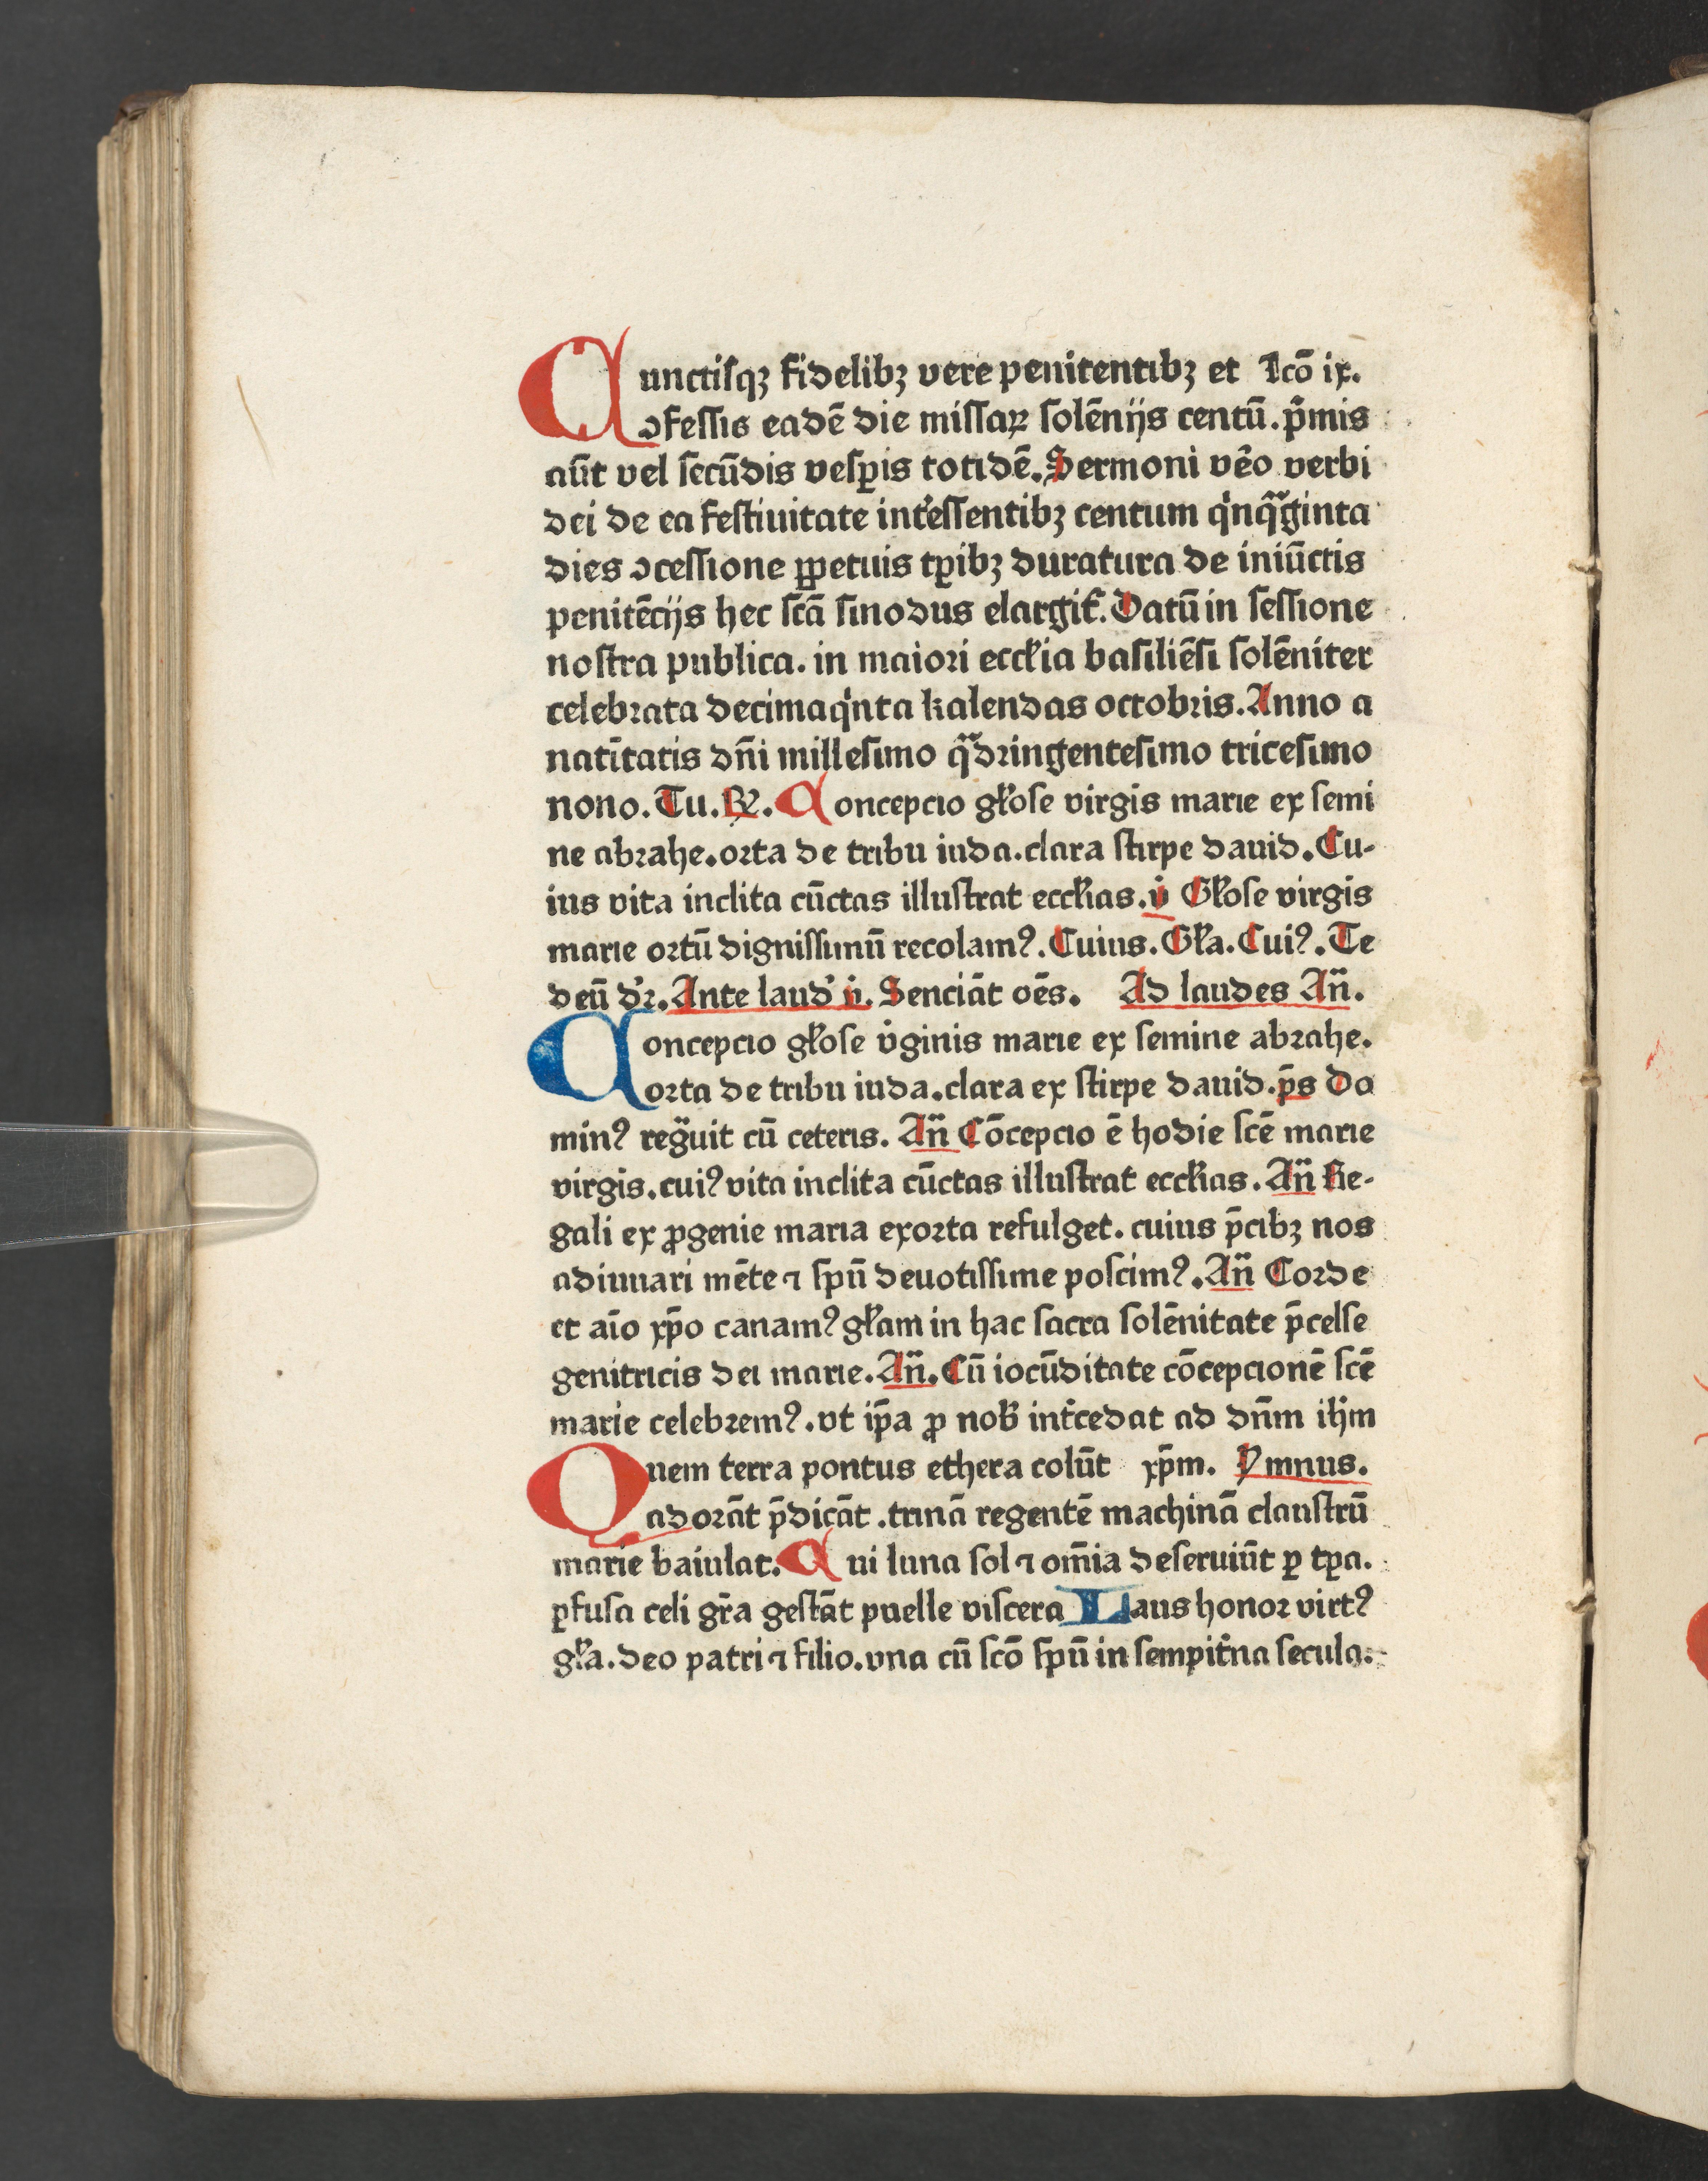 Cunctisqꝫ fidelibꝫ vere penitentibꝫ et Lcō ix.
ↄfessis eadē die missaꝝ solēnijs centū. p̄mis
aūt vel secūdis vesꝑis totidē. Sermoni vēo verbi
dei de ea festiuitate int͛essentibꝫ centum qͥnqᷓginta
dies ↄcessione ꝑpetuis tꝑibꝫ duratura de iniūctis
penitēcijs hec scā sinodus elargit͛. Datū in sessione
nostra publica. in maiori eccľia basiliēsi solēniter
celebrata decimaqͥnta kalendas octobris. Anno a
natītatis dn̄i millesimo qᷓdringentesimo tricesimo
nono. Tu. ℟. Concepcio gľose virgīs marie ex semi
ne abrahe. orta de tribu iuda. clara stirpe dauid. Cu-
ius vita inclita cūctas illustrat eccľias. v̇ Gľose virgis
marie ortū dignissimū recolamꝰ. Cuius. Gľa. Cuiꝰ. Te
deū dꝛ̄. Ante laud᷒ v̇. Senciāt oēs. Ad laudes An̄.
Concepcio gľose v̇ginis marie ex semine abrahe.
orta de tribu iuda. clara ex stirpe dauid. p̄s Do
minꝰ regᷓuit cū ceteris. An̄ Cōcepcio ē hodie scē marie
virgis. cuiꝰ vita inclita cūctas illustrat eccľias. An̄ Re-
gali ex ꝓgenie maria exorta refulget. cuius p̄cibꝫ nos
adiuuari mēte ⁊ spū deuotissime poscimꝰ. An̄ Corde
et aīo xp̄o canamꝰ gľam in hac sacra solēnitate p̄celse
genitricis dei marie. An̄. Cū iocūditate cōcepcionē scē
marie celebremꝰ. vt ip̄a ꝓ nob̄ int͛cedat ad dn̄m ih̄m
Quem terra pontus ethera colūt xp̄m. Ymnus.
adorāt p̄dicāt. trinā regentē machinā claustrū
marie baiulat. Cui luna sol ⁊ om̄ia deseruiūt ꝑ tꝑa.
ꝑfusa celi gr̄a gestāt puelle viscera Laus honor virtꝰ
gľa. deo patri ⁊ filio. vna cū scō spū in sempit͛na secula.